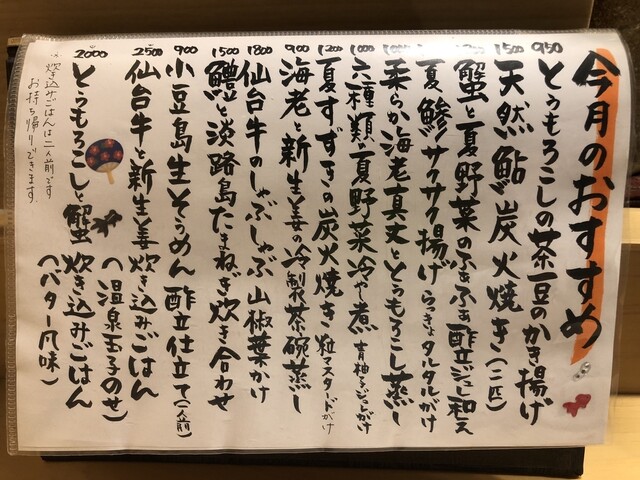 今月のおすすめ
950 とうもろこしの茶豆のかき揚げ
1500 天然鮎炭火焼き(二匹)
蟹と夏野菜のふぁふぁ酢立ジュレ和え
夏鯵サクサク揚げ らっきょタルタルがけ
柔らか海老真丈ととうもろこし蒸し
1000 六種類の夏野菜冷やし煮 青柚子ジュレがけ
1200 夏すずきの炭火焼き 粒マスタードがけ
900 海老と新生姜の冷製茶碗蒸し
1800 仙台牛のしゃぶしゃぶ山椒葉かけ
1500 鱧と淡路島たまねぎ炊き合わせ
900 小豆島生そうめん 酢立仕立て(一人前)
2500 仙台牛と新生姜炊き込みごはん
(温泉玉子のせ)
2000 とうもろこしと蟹炊き込みごはん
(バター風味)
※炊き込みごはんは二人前です
お持ち帰りできます